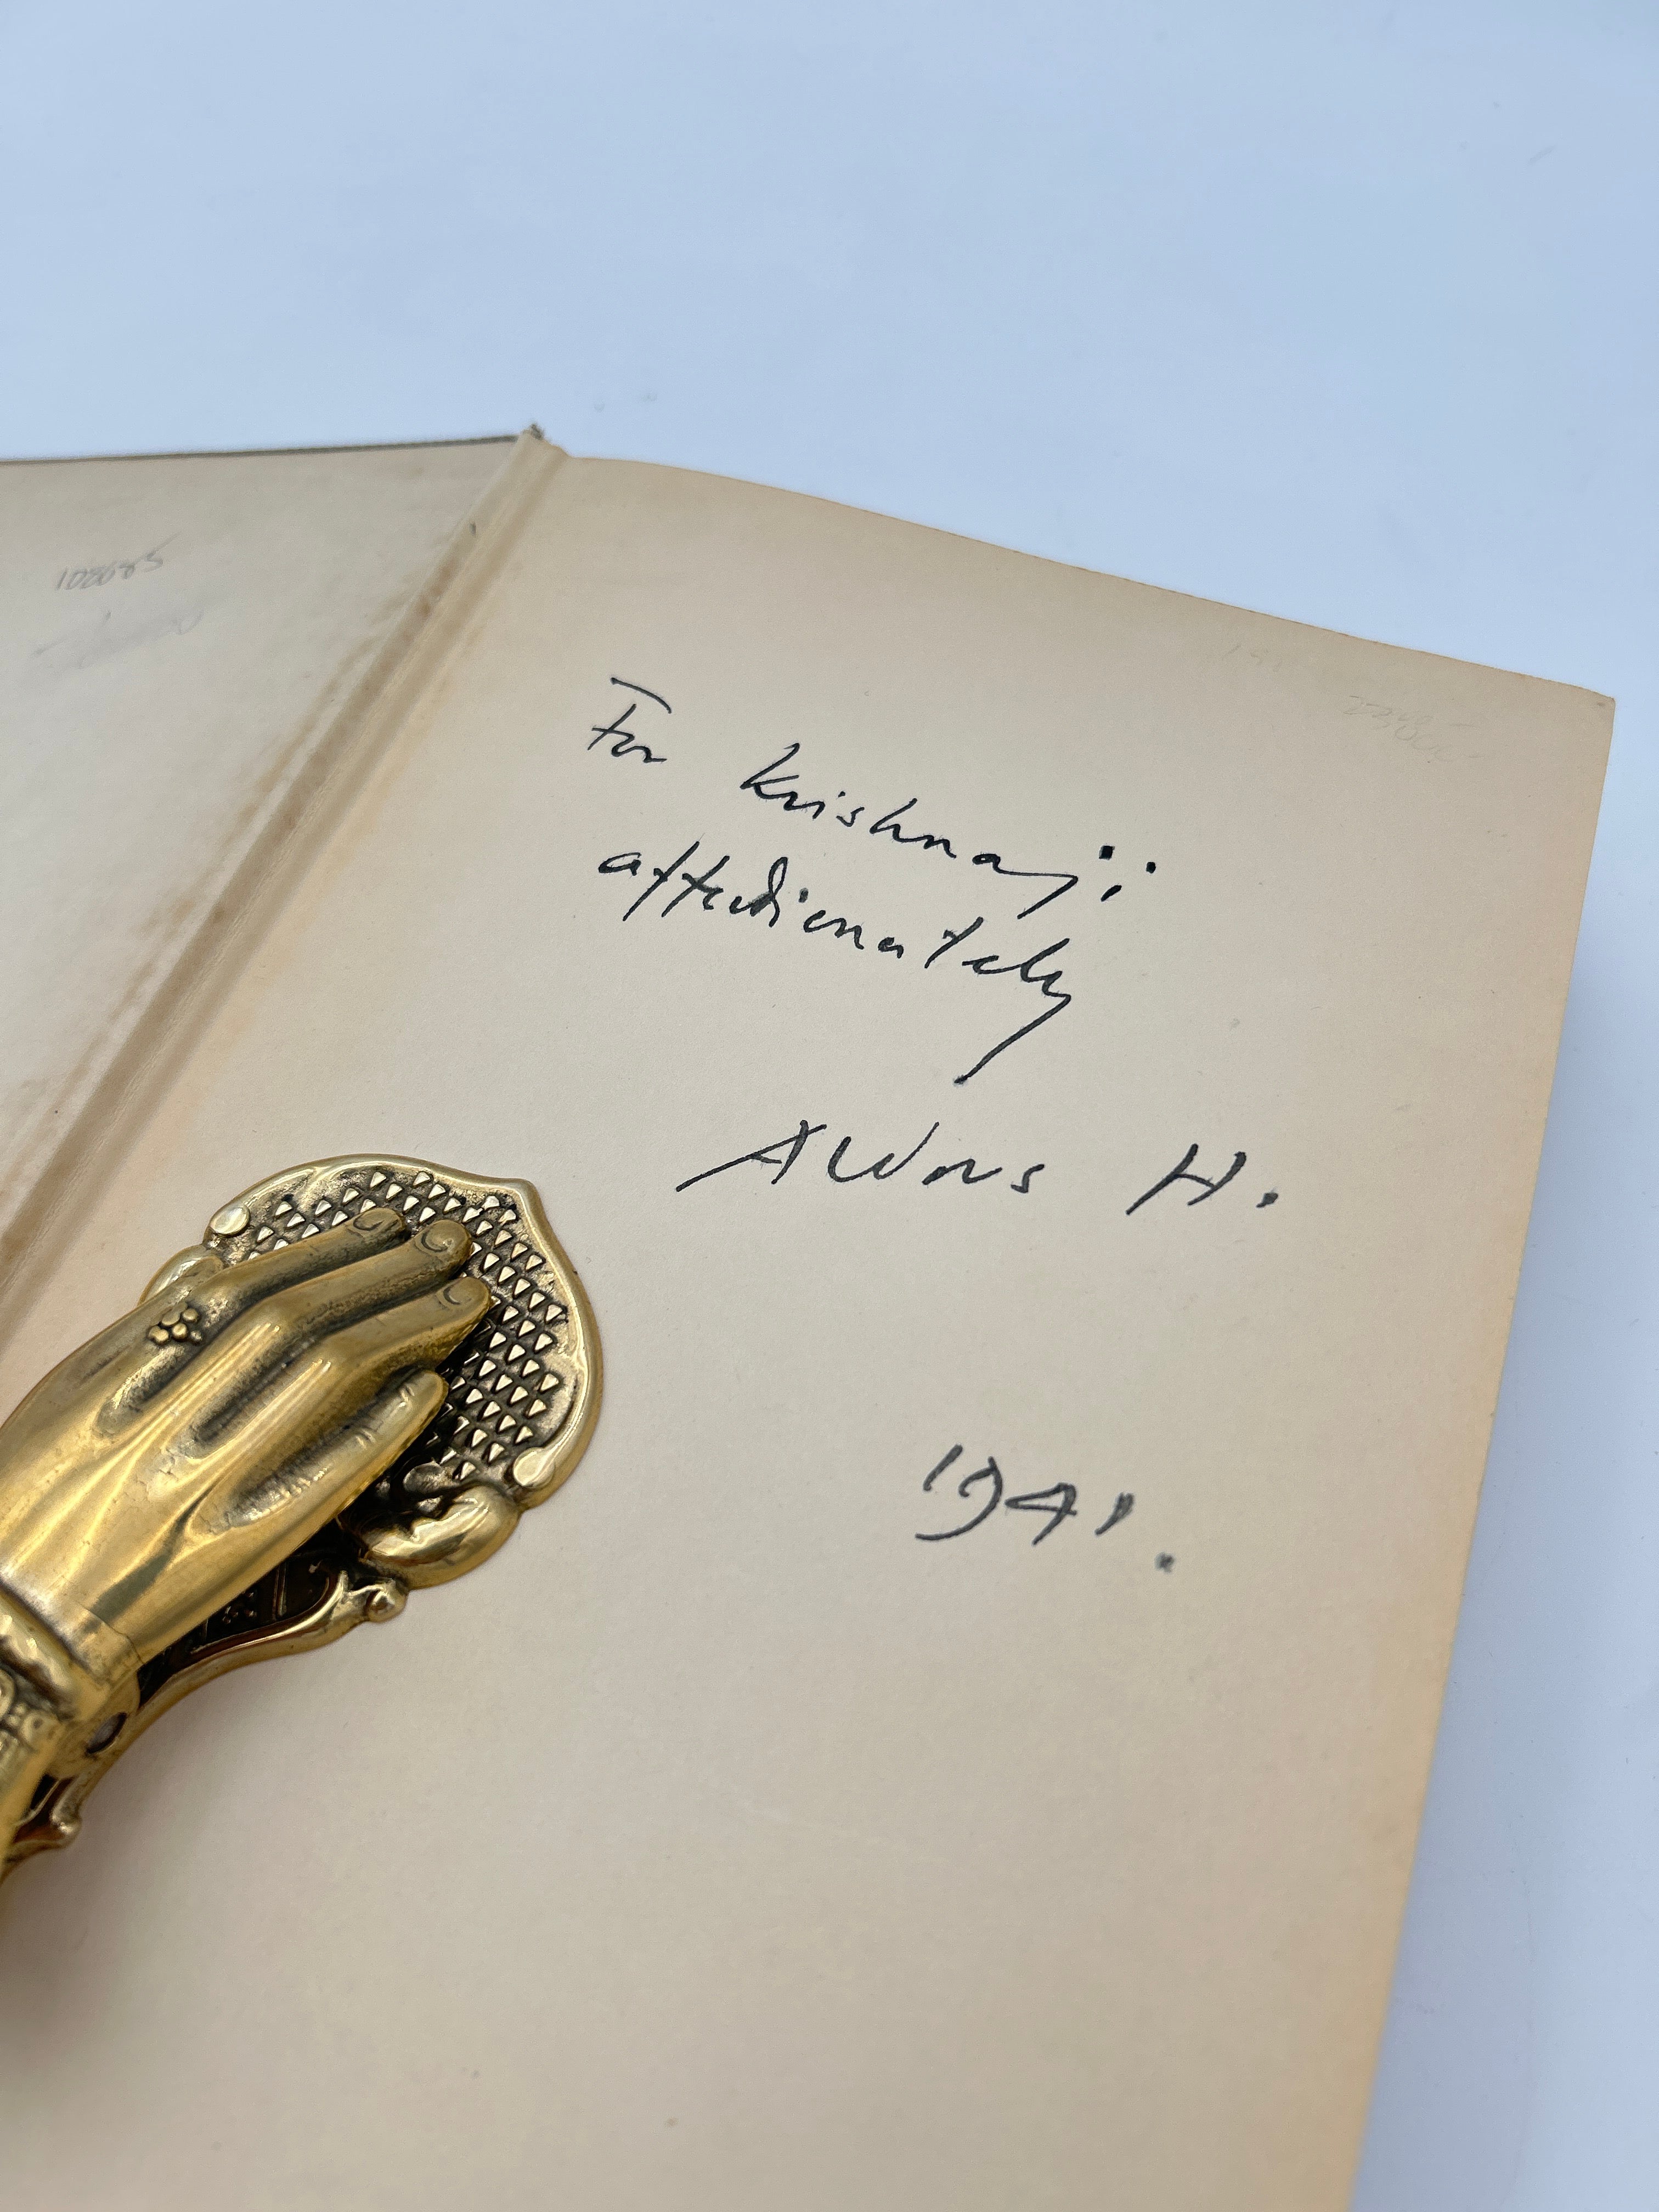 108685
For Krishnaji
affectionately
Aldous H.
1941.